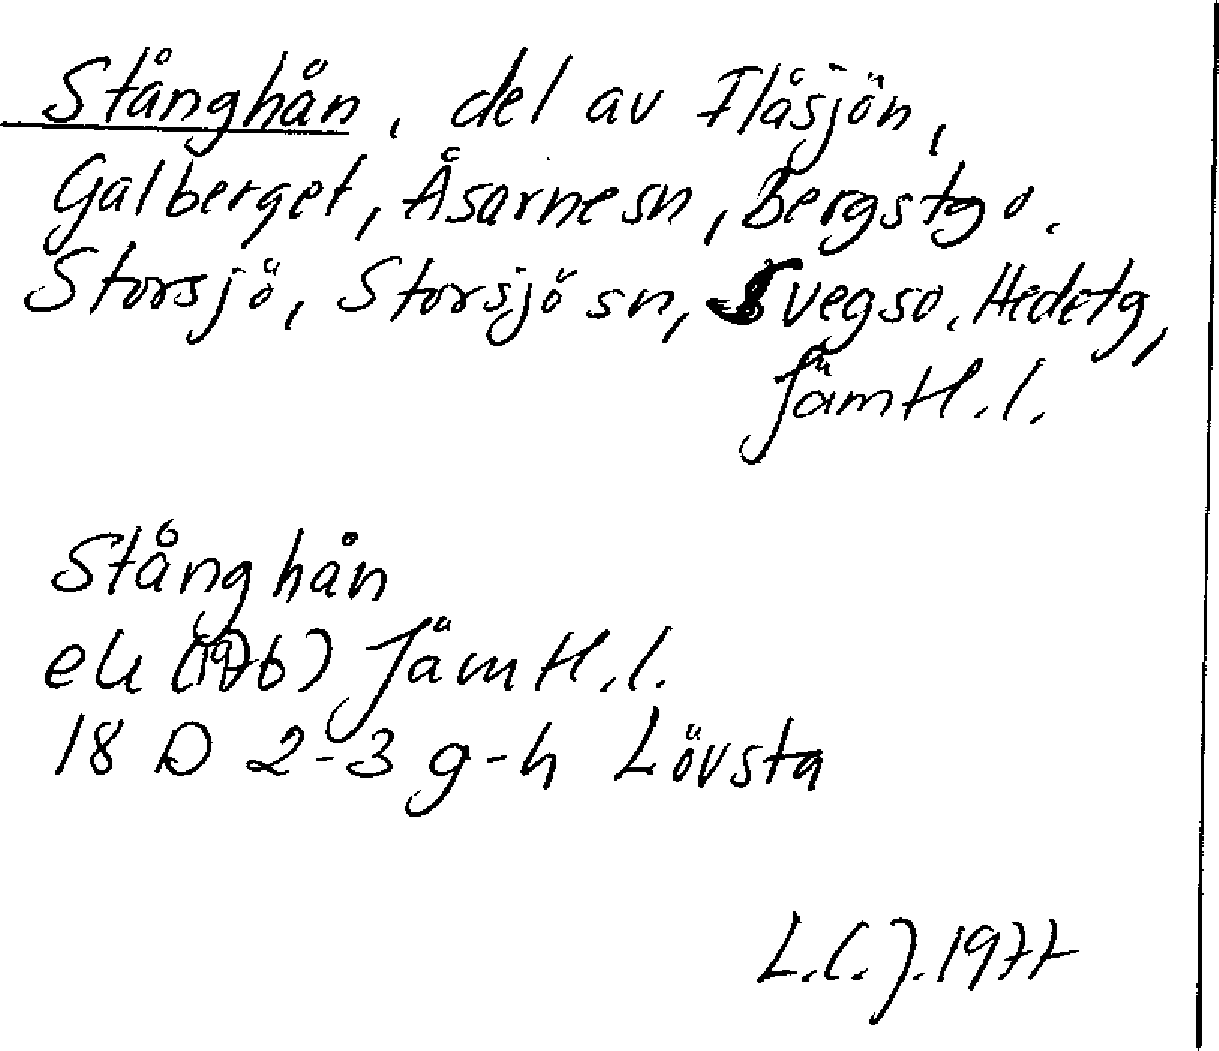 Stånghån, del av Flåsjön,
Galberget, Åsarne sn, Bergs tg o.
Storsjö, Storsjö sn, Svegs o. Hede tg,
Jämtl. l.
Stånghån
ek (1976) Jämtl. l.
18 D 2-3 g-h Lövsta
L.C.J. 1977